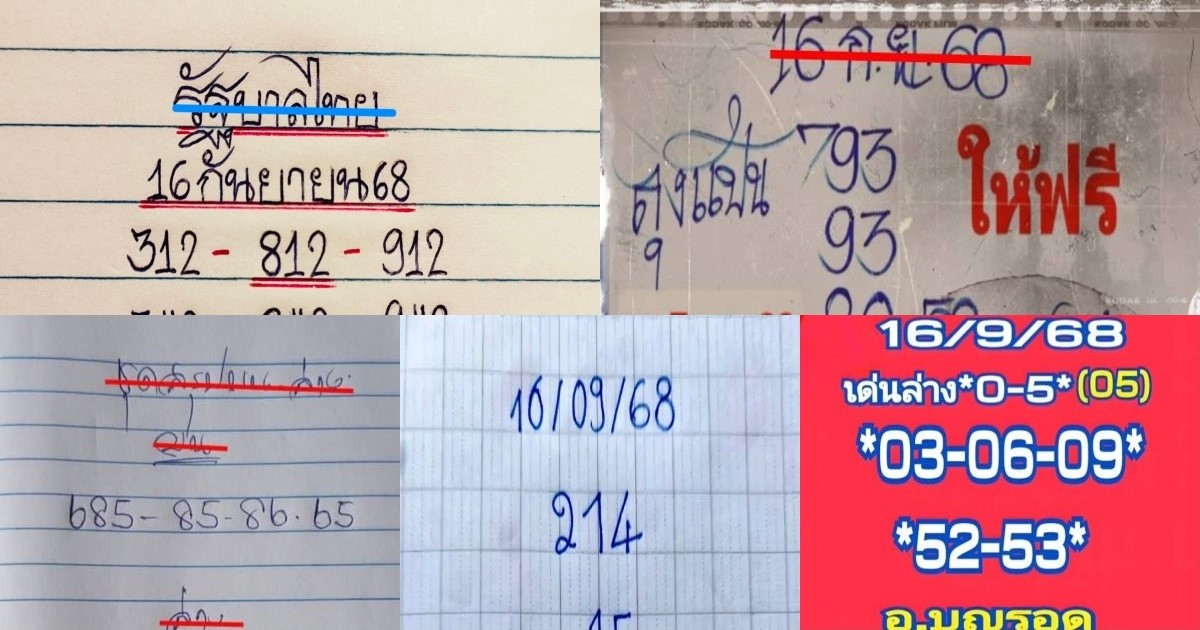 รัฐบาลไทย
16 กันยายน 68
312 - 812 - 912
16 ก.ย. 68
793
93
9
ให้ฟรี
บน
685 - 85 - 86 . 65
ล่าง
16/09/68
214
15
16/9/68
เด่นล่าง*0-5*(05)
*03-06-09*
*52-53*
อ.บุญรอด